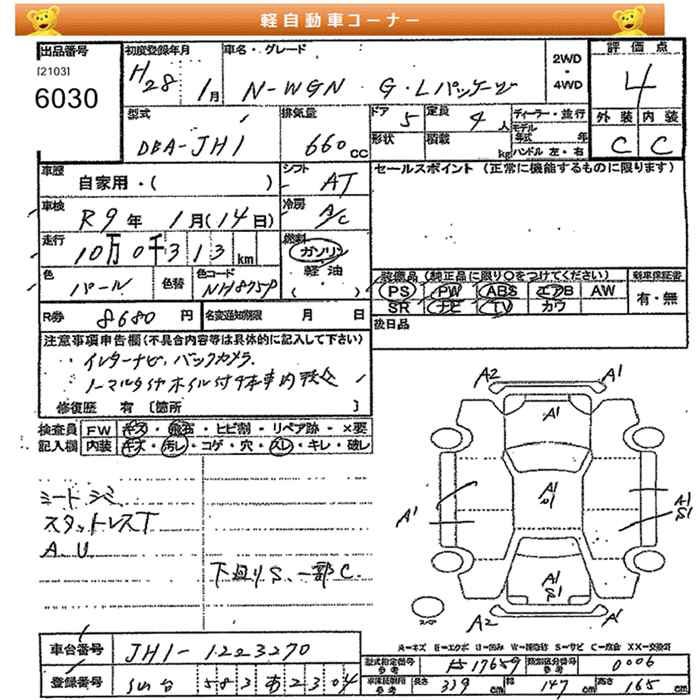 軽自動車コーナー
出品番号
[2103]
6030
初度登録年月
H28 1月
車名・グレード
N-WGN G・Lパッケージ
2WD
・
4WD
評価点
4
外装 内装
C C
型式
DBA-JH1
排気量
660 CC
ドア 5
定員 4人
形状
積載 kg
ディーラー・並行
モデル年式 年
ハンドル 左・右
車歴
自家用・( )
シフト
AT
セールスポイント (正常に機能するものに限ります)
車検
R9年 1月(14日)
冷房
A/C
走行
10万0千313km
燃料
ガソリン
軽油
( )
色
パール
色替
色コード
NH875P
装備品 (純正品に限り○をつけてください)
PS PW ABS エアB AW
SR ナビ TV カワ
新車保証書
有・無
後日品
R券 8680円
名変通知期限 月 日
注意事項申告欄(不具合内容等は具体的に記入して下さい)
インターナビ、バックカメラ、
ノーマルタイヤホイル付4本車内
修復歴 有 [箇所 ]
検査員 FW キズ・飛石・ヒビ割・リペア跡・×要
記入欄 内装 キズ・汚レ・コゲ・穴・スレ・キレ・破レ
シートシミ
スタットレスT
A.U
下廻りS、一部C.
A2 A1
A1
A1 A1 U1 A1 S1
A1 S1
A2 A1
スペア
A=キズ E=エクボ U=凹み W=補修跡 S=サビ C=腐食 XX=交換済
車台番号 JH1-1223270
登録番号 仙台 583 あ 2304
型式指定番号 参考 17659
類別区分番号 参考 0006
車検証記載 参考 長さ 339cm 幅 147cm 高さ 165cm